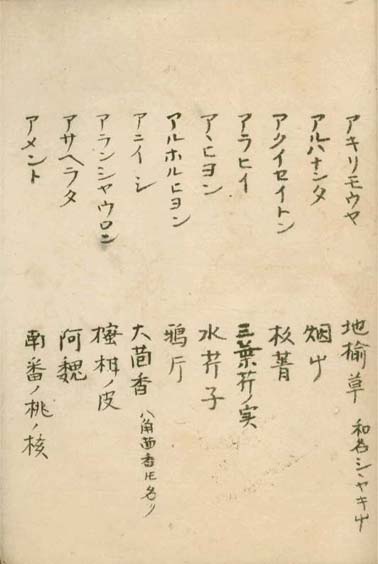 アキリモウヤ 地楡草 和名シヽヤキ屮
アルハナンタ 烟屮
アクイセイトン 菁
アラヒイ 三葉芹ノ実
アヽヒヨン 水芹子
アルホルヒヨン 鴉片
アニイシ 大茴香 八角茴香𪜈名リ
アランシヤウロン 樒柑ノ皮
アサヘラタ 阿魏
アメント 南番ノ桃ノ核